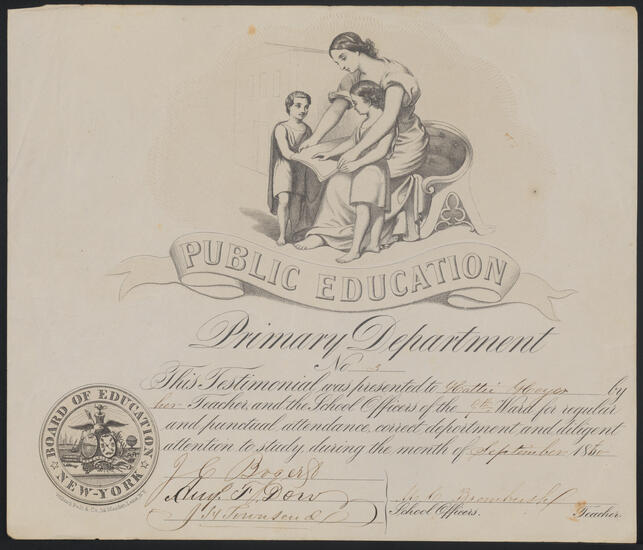 PUBLIC EDUCATION
Primary Department
No 3
This Testimonial was presented to Hattie by
her Teacher, and the School Officers of the Ward for regular
and punctual attendance, correct deportment and diligent
attention to study, during the month of September 186
J. C. Bogert
Aug. F. Dow
J H Townsend
School Officers.
Teacher.
BOARD OF EDUCATION
NEW-YORK